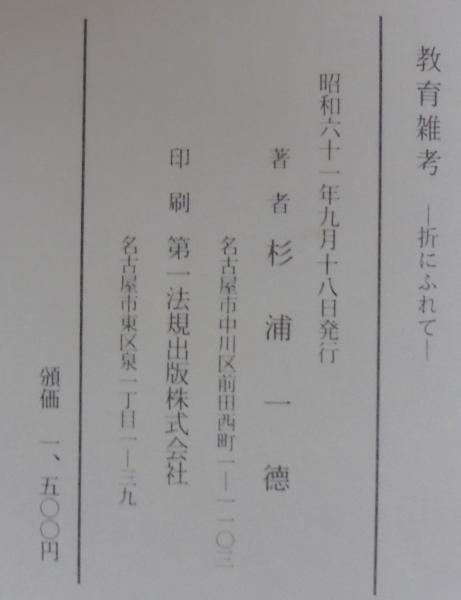 教育雑考 ―折にふれて―
昭和六十一年九月十八日発行
著者 杉浦一德
名古屋市中川区前田西町一―一一〇三
印刷 第一法規出版株式会社
名古屋市東区泉一丁目一―三九
頒価 一、五〇〇円